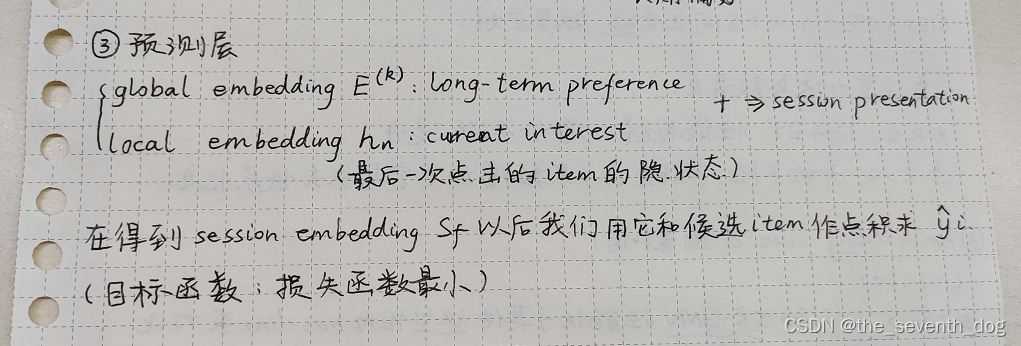 ③预测层
global embedding E^(k): long-term preference
+ ⇒ session presentation
local embedding hn: current interest
(最后一次点击的item的隐状态)
在得到 session embedding Sf 以后我们用它和候选item作点积求 ŷi.
(目标函数:损失函数最小)
CSDN @the_seventh_dog